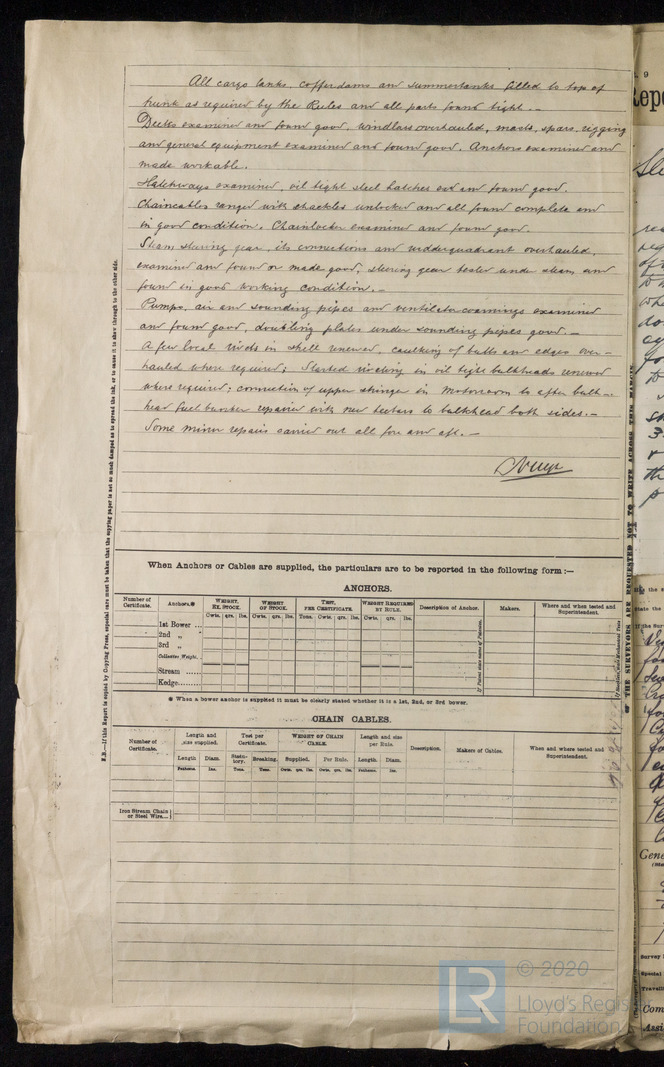 All cargo tanks, cofferdams and summertanks filled to top of
trunk as required by the Rules and all parts found tight. -
Decks examined and found good, windlass overhauled, masts, spars, rigging
and general equipment examined and found good. Anchors examined and
made workable.
Hatchways examined, oil tight steel hatches and found good.
Chaincables ranged with shackles unlocked and all found complete and
in good condition. Chainlocker examined and found good.
Steam steering gear, its connections and rudderquadrant overhauled,
examined and found or made good, steering gear tested under steam, and
found in good working condition. -
Pumps, air and sounding pipes and ventilator coamings examined
and found good, doubling plates under sounding pipes good. -
A few local rivets in shell renewed, caulking of butts and edges over-
hauled where required; Started riveting in oil tight bulkheads renewed
where required; connection of upper stringer in Motorroom to after bulk-
head fuel bunker repaired with new to bulkhead both sides. -
Some minor repairs carried out all fore and aft. -
When Anchors or Cables are supplied, the particulars are to be reported in the following form :—
ANCHORS.
Number of Certificate. Anchors.* WEIGHT, EX. STOCK. WEIGHT OF STOCK. TEST, PER CERTIFICATE. WEIGHT REQUIRED BY RULE. Description of Anchor. Makers. Where and when tested and Superintendent.
Cwts. qrs. lbs. Cwts. qrs. lbs. Tons. Cwts. qrs. lbs. Cwts. qrs. lbs.
1st Bower ...
2nd „ „
3rd „ „
Collective Weight.
Stream ......
Kedge.........
* When a bower anchor is supplied it must be clearly stated whether it is a 1st, 2nd, or 3rd bower.
CHAIN CABLES.
Number of Certificate. Length and size supplied. Test per Certificate. WEIGHT OF CHAIN CABLE. Length and size per Rule. Description. Makers of Cables. When and where tested and Superintendent.
Length Diam. Statutory. Breaking. Supplied. Per Rule. Length. Diam.
Fathoms. Ins. Tons. Tons. Cwts. qrs. lbs. Cwts. qrs. lbs. Fathoms. Ins.
Iron Stream Chain
or Steel Wire...
N.B.—If this Report is copied by Copying Press, especial care must be taken that the copying paper is not so much damped as to spread the ink, or to cause it to show through to the other side.
THE SURVEYORS ARE REQUESTED NOT TO WRITE ACROSS THIS MARGIN
LR
© 2020
Lloyd's Register
Foundation